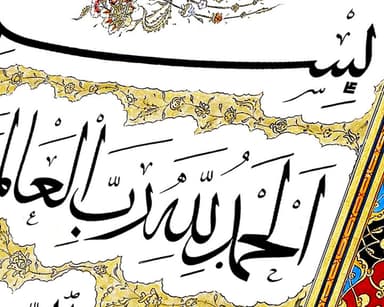 بِسْـ
اَلْحَمْدُ لِلّٰهِ رَبِّ الْعَالَمـ